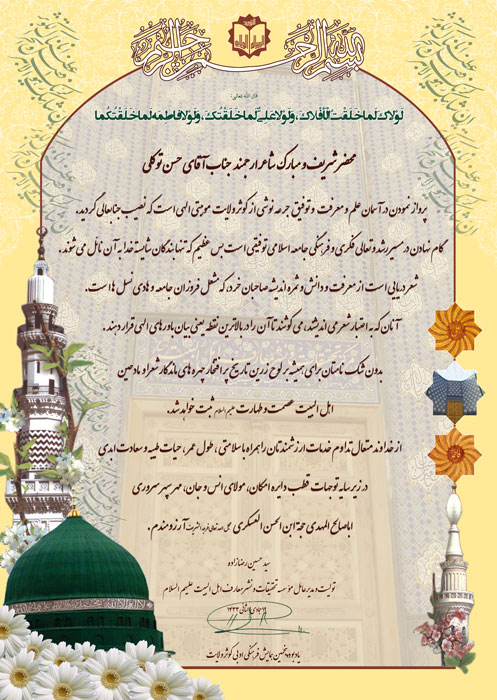 بسم الله الرحمن الرحیم
قال الله تعالی:
لَوْلاكَ لَمَا خَلَقْتُ الْأَفْلاكَ، وَلَوْلا عَلِيٌّ لَمَا خَلَقْتُكَ، وَلَوْلا فَاطِمَةُ لَمَا خَلَقْتُكُمَا
محضر شریف و مبارک شاعر ارجمند جناب آقای حسن توکلی
پرواز نمودن در آسمان علم و معرفت و توفیق جرعه نوشی از کوثر ولایت موهبتی الهی است که نصیب جنابعالی گردید.
گام نهادن در مسیر رشد و تعالی فکری و فرهنگی جامعه اسلامی توفیقی است بس عظیم که تنها بندگان شایسته خدا به آن نائل می شوند.
شعر دریایی است از معرفت و دانش و ثمره اندیشه صاحبان خرد، که مشعل فروزان جامعه و هادی نسل ها است.
آنان که به اعتبار شعر می اندیشند، می کوشند تا آن را در بالاترین نقطه یعنی بیان باورهای الهی قرار دهند.
بدون شک نامتان برای همیشه بر لوح زرین تاریخ پر افتخار چهره های ماندگار شعرا و مادحین
اهل البیت عصمت و طهارت علیهم السلام ثبت خواهد شد.
از خداوند متعال تداوم خدمات ارزشمندتان را همراه با سلامتی، طول عمر، حیات طیبه و سعادت ابدی
در زیر سایه توجهات قطب دایره امکان، مولای انس و جان، مهر سپهر سروری
اباصالح المهدی حجة ابن الحسن العسکری عجل الله تعالی فرجه الشریف آرزومندم.
سید حسین رضازاده
تولیت و مدیر عامل مؤسسه تحقیقات و نشر معارف اهل البیت علیهم السلام
جمادی الثانی ۱۴۳۳
یادبود پنجمین همایش فرهنگی ادبی کوثر ولایت